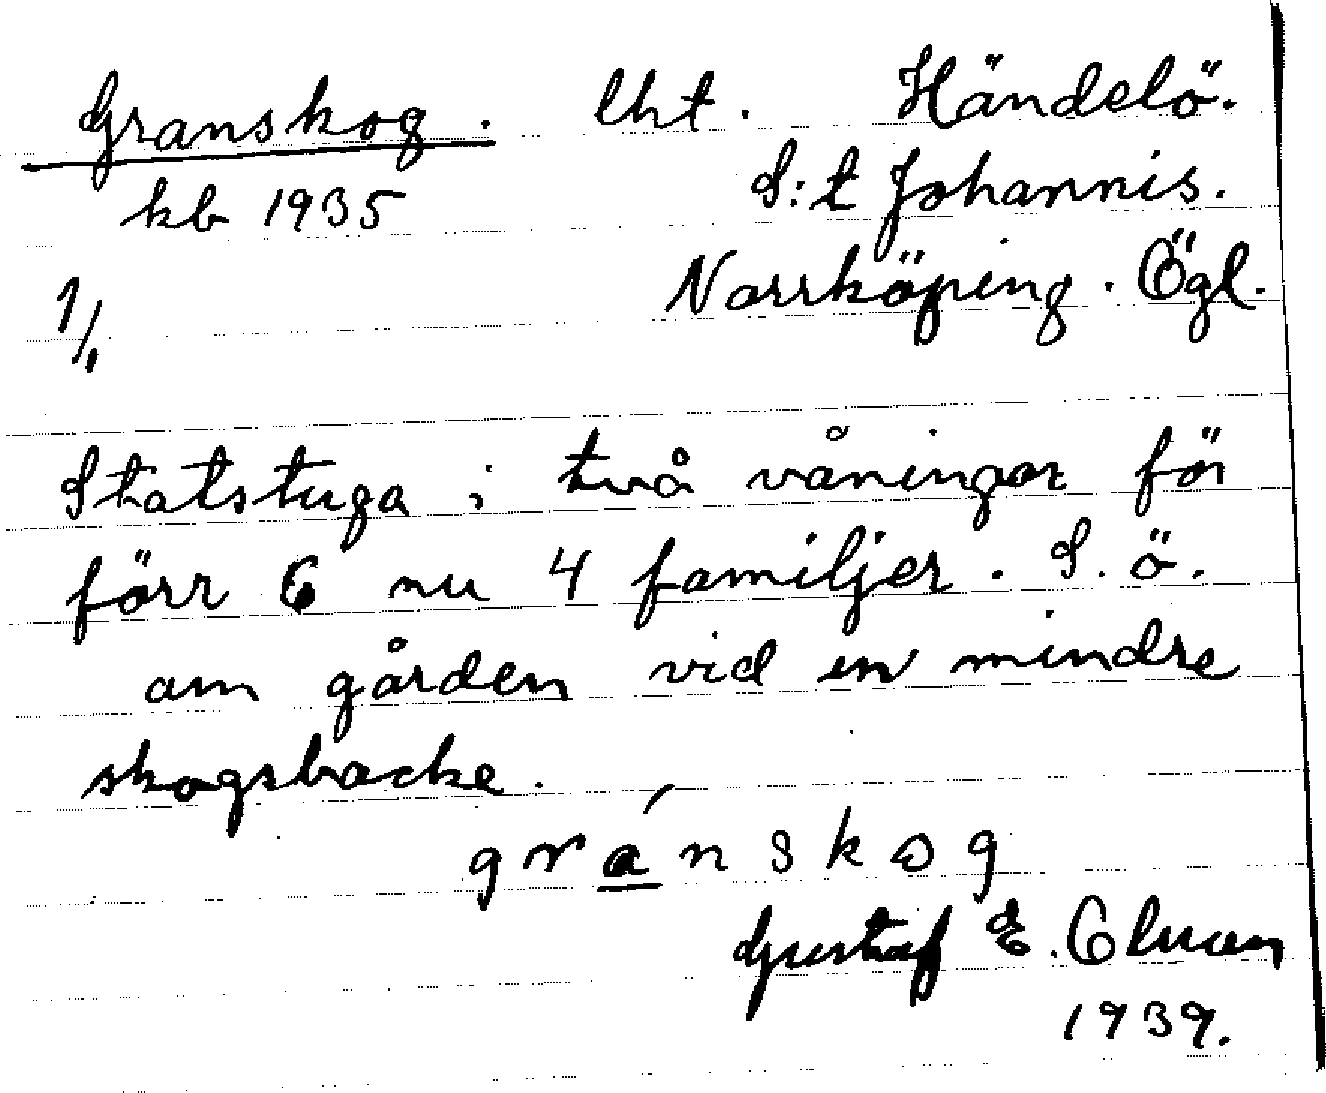 Granskog. lht. Händelö.
kb 1935 S:t Johannis.
1/1 Norrköping. Ögl.
Statstuga i två våningar för
förr 6 nu 4 familjer. S. ö.
om gården vid en mindre
skogsbacke.
gránskog
Gustaf E.
1939.